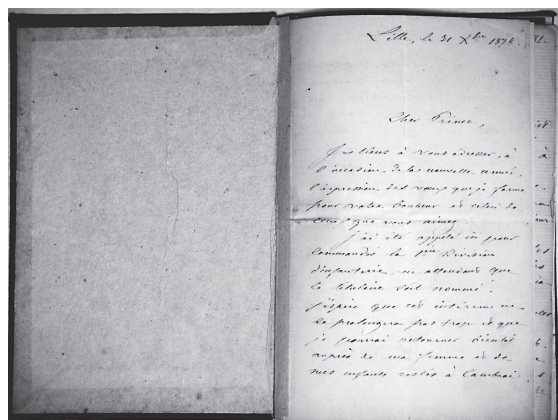 Lille, le 31 Xbre 1878.
Cher Prince,
Je tiens à vous adresser, à
l'occasion de la nouvelle année,
l'expression des vœux que je forme
pour votre bonheur et celui de
ceux que vous aimez.
J'ai été appelé ici pour
commander la 1ère Division
d'infanterie, en attendant que
le titulaire soit nommé.
J'espère que cet intérim ne
se prolongera pas trop et que
je pourrai retourner bientôt
auprès de ma femme et de
mes enfants restés à Cambrai.